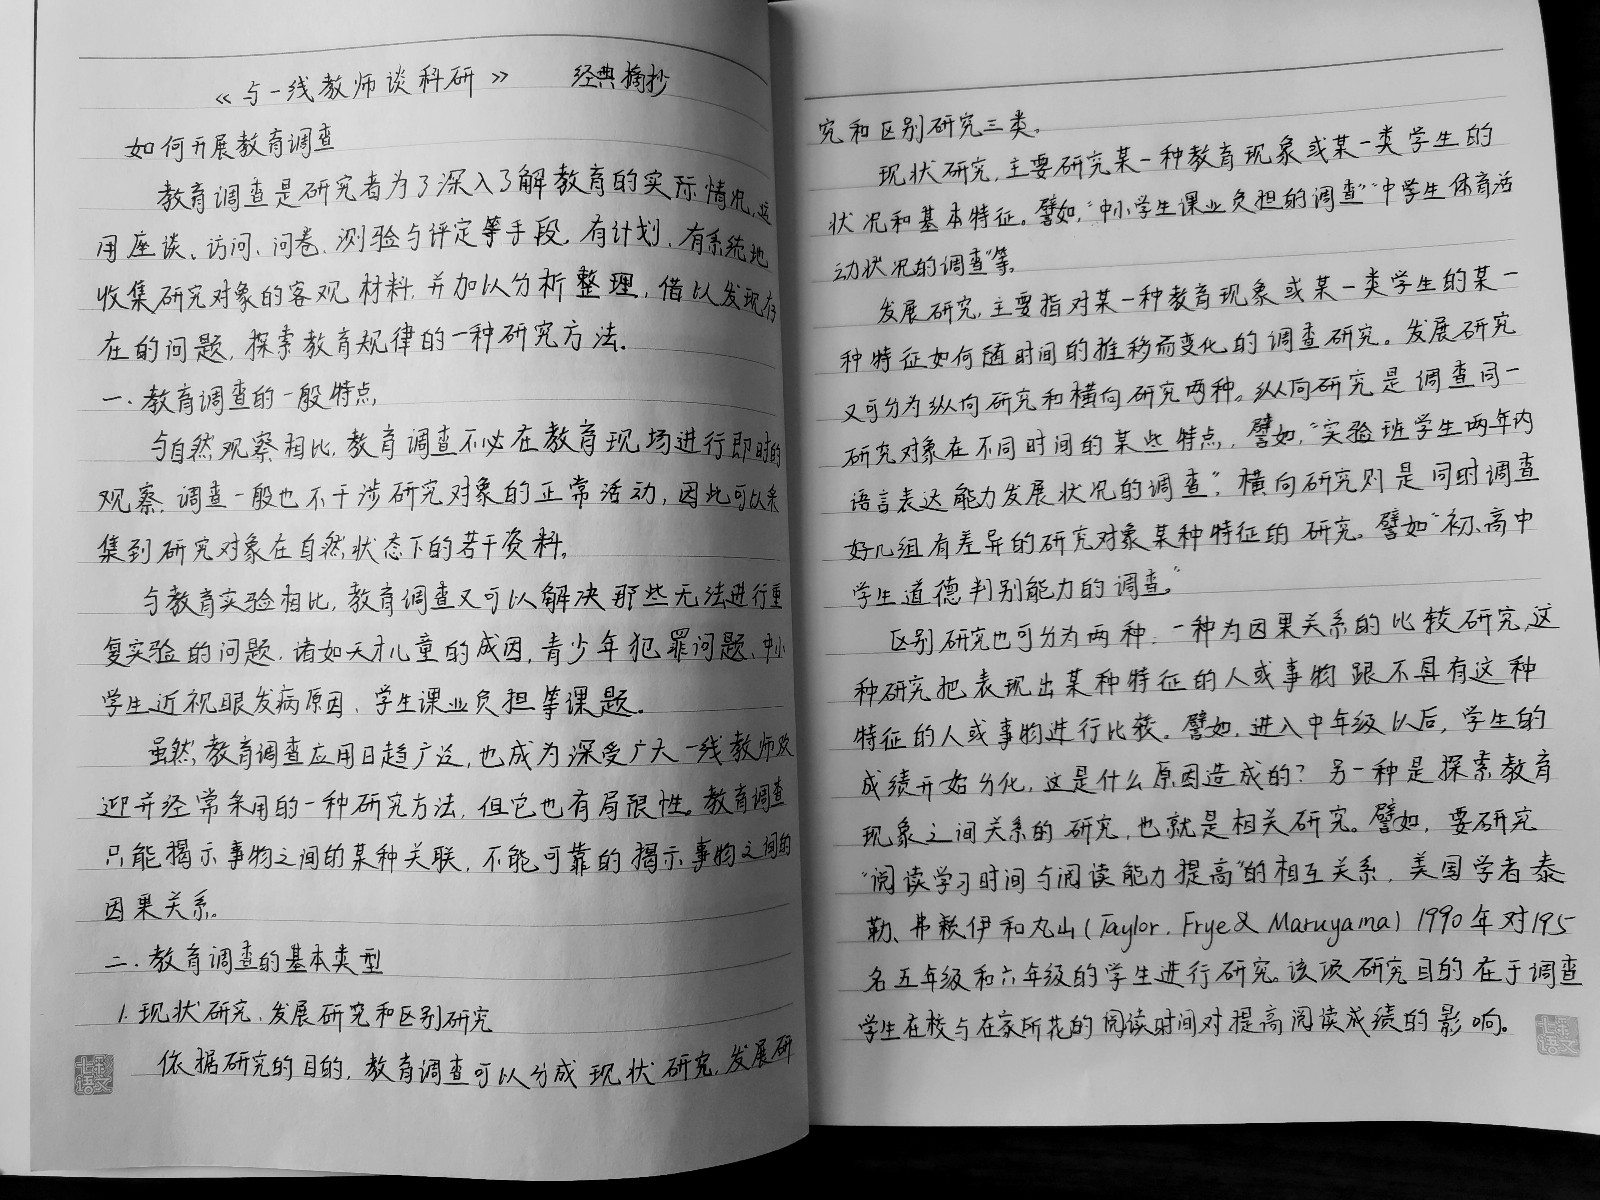 《与一线教师谈科研》 经典摘抄
如何开展教育调查
教育调查是研究者为了深入了解教育的实际情况,运
用座谈、访问、问卷、测验与评定等手段,有计划、有系统地
收集研究对象的客观材料,并加以分析整理,借以发现存
在的问题,探索教育规律的一种研究方法.
一.教育调查的一般特点
与自然观察相比,教育调查不必在教育现场进行即时的
观察,调查一般也不干涉研究对象的正常活动,因此可以采
集到研究对象在自然状态下的若干资料。
与教育实验相比,教育调查又可以解决那些无法进行重
复实验的问题.诸如天才儿童的成因,青少年犯罪问题、中小
学生近视眼发病原因、学生课业负担等课题.
虽然教育调查应用日趋广泛,也成为深受广大一线教师欢
迎并经常采用的一种研究方法,但它也有局限性。教育调查
只能揭示事物之间的某种关联,不能可靠的揭示事物之间的
因果关系。
二.教育调查的基本类型
1.现状研究、发展研究和区别研究
依据研究的目的,教育调查可以分成现状研究,发展研
七彩语文
究和区别研究三类。
现状研究,主要研究某一种教育现象或某一类学生的
状况和基本特征。譬如,“中小学生课业负担的调查”“中学生体育活
动状况的调查”等。
发展研究,主要指对某一种教育现象或某一类学生的某一
种特征如何随时间的推移而变化的调查研究。发展研究
又可分为纵向研究和横向研究两种。纵向研究是调查同一
研究对象在不同时间的某些特点,譬如,“实验班学生两年内
语言表达能力发展状况的调查”,横向研究则是同时调查
好几组有差异的研究对象某种特征的研究。譬如“初、高中
学生道德判别能力的调查。”
区别研究也可分为两种:一种为因果关系的比较研究,这
种研究把表现出某种特征的人或事物跟不具有这种
特征的人或事物进行比较。譬如,进入中年级以后,学生的
成绩开始分化,这是什么原因造成的?另一种是探索教育
现象之间关系的研究,也就是相关研究。譬如,要研究
“阅读学习时间与阅读能力提高”的相互关系,美国学者泰
勒、弗赖伊和丸山(Taylor.Frye & Maruyama)1990年对195
名五年级和六年级的学生进行研究。该项研究目的在于调查
学生在校与在家所花的阅读时间对提高阅读成绩的影响。
七彩语文